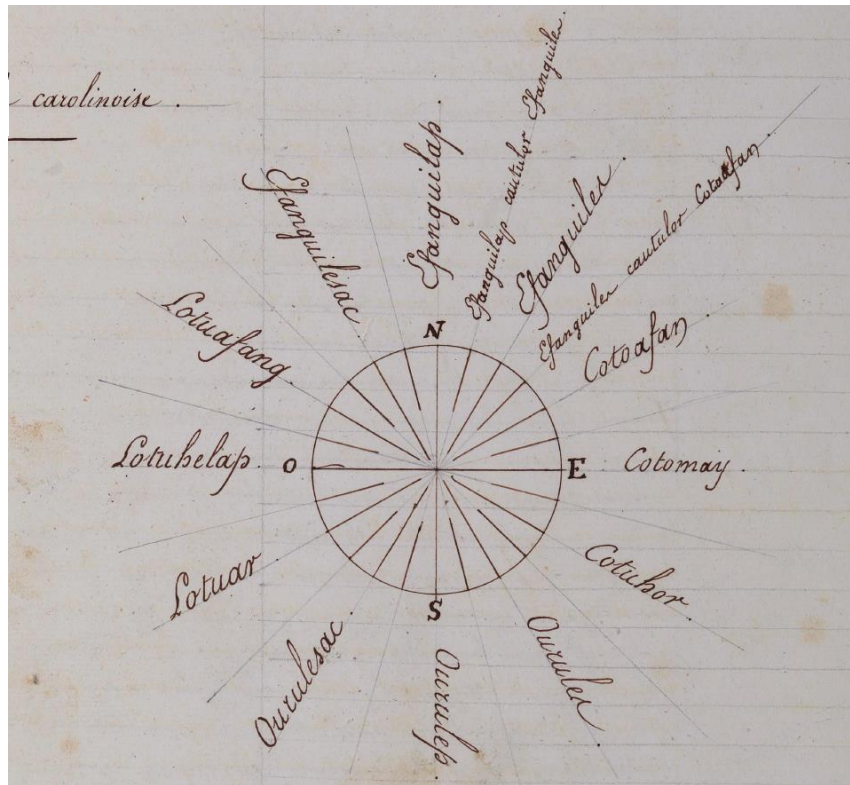 carolinoise.
Efanguilap
Efanguilap cautulor Efanguiler.
Efanguiler.
Efanguiler cautulor Cotoafan.
Cotoafan.
E Cotomay.
Cotuhor.
Ouruler
S
Ourulep.
Ourulesac
Lotuar
Lotuhelap. O
Lotuafang
Efanguilesac.
N